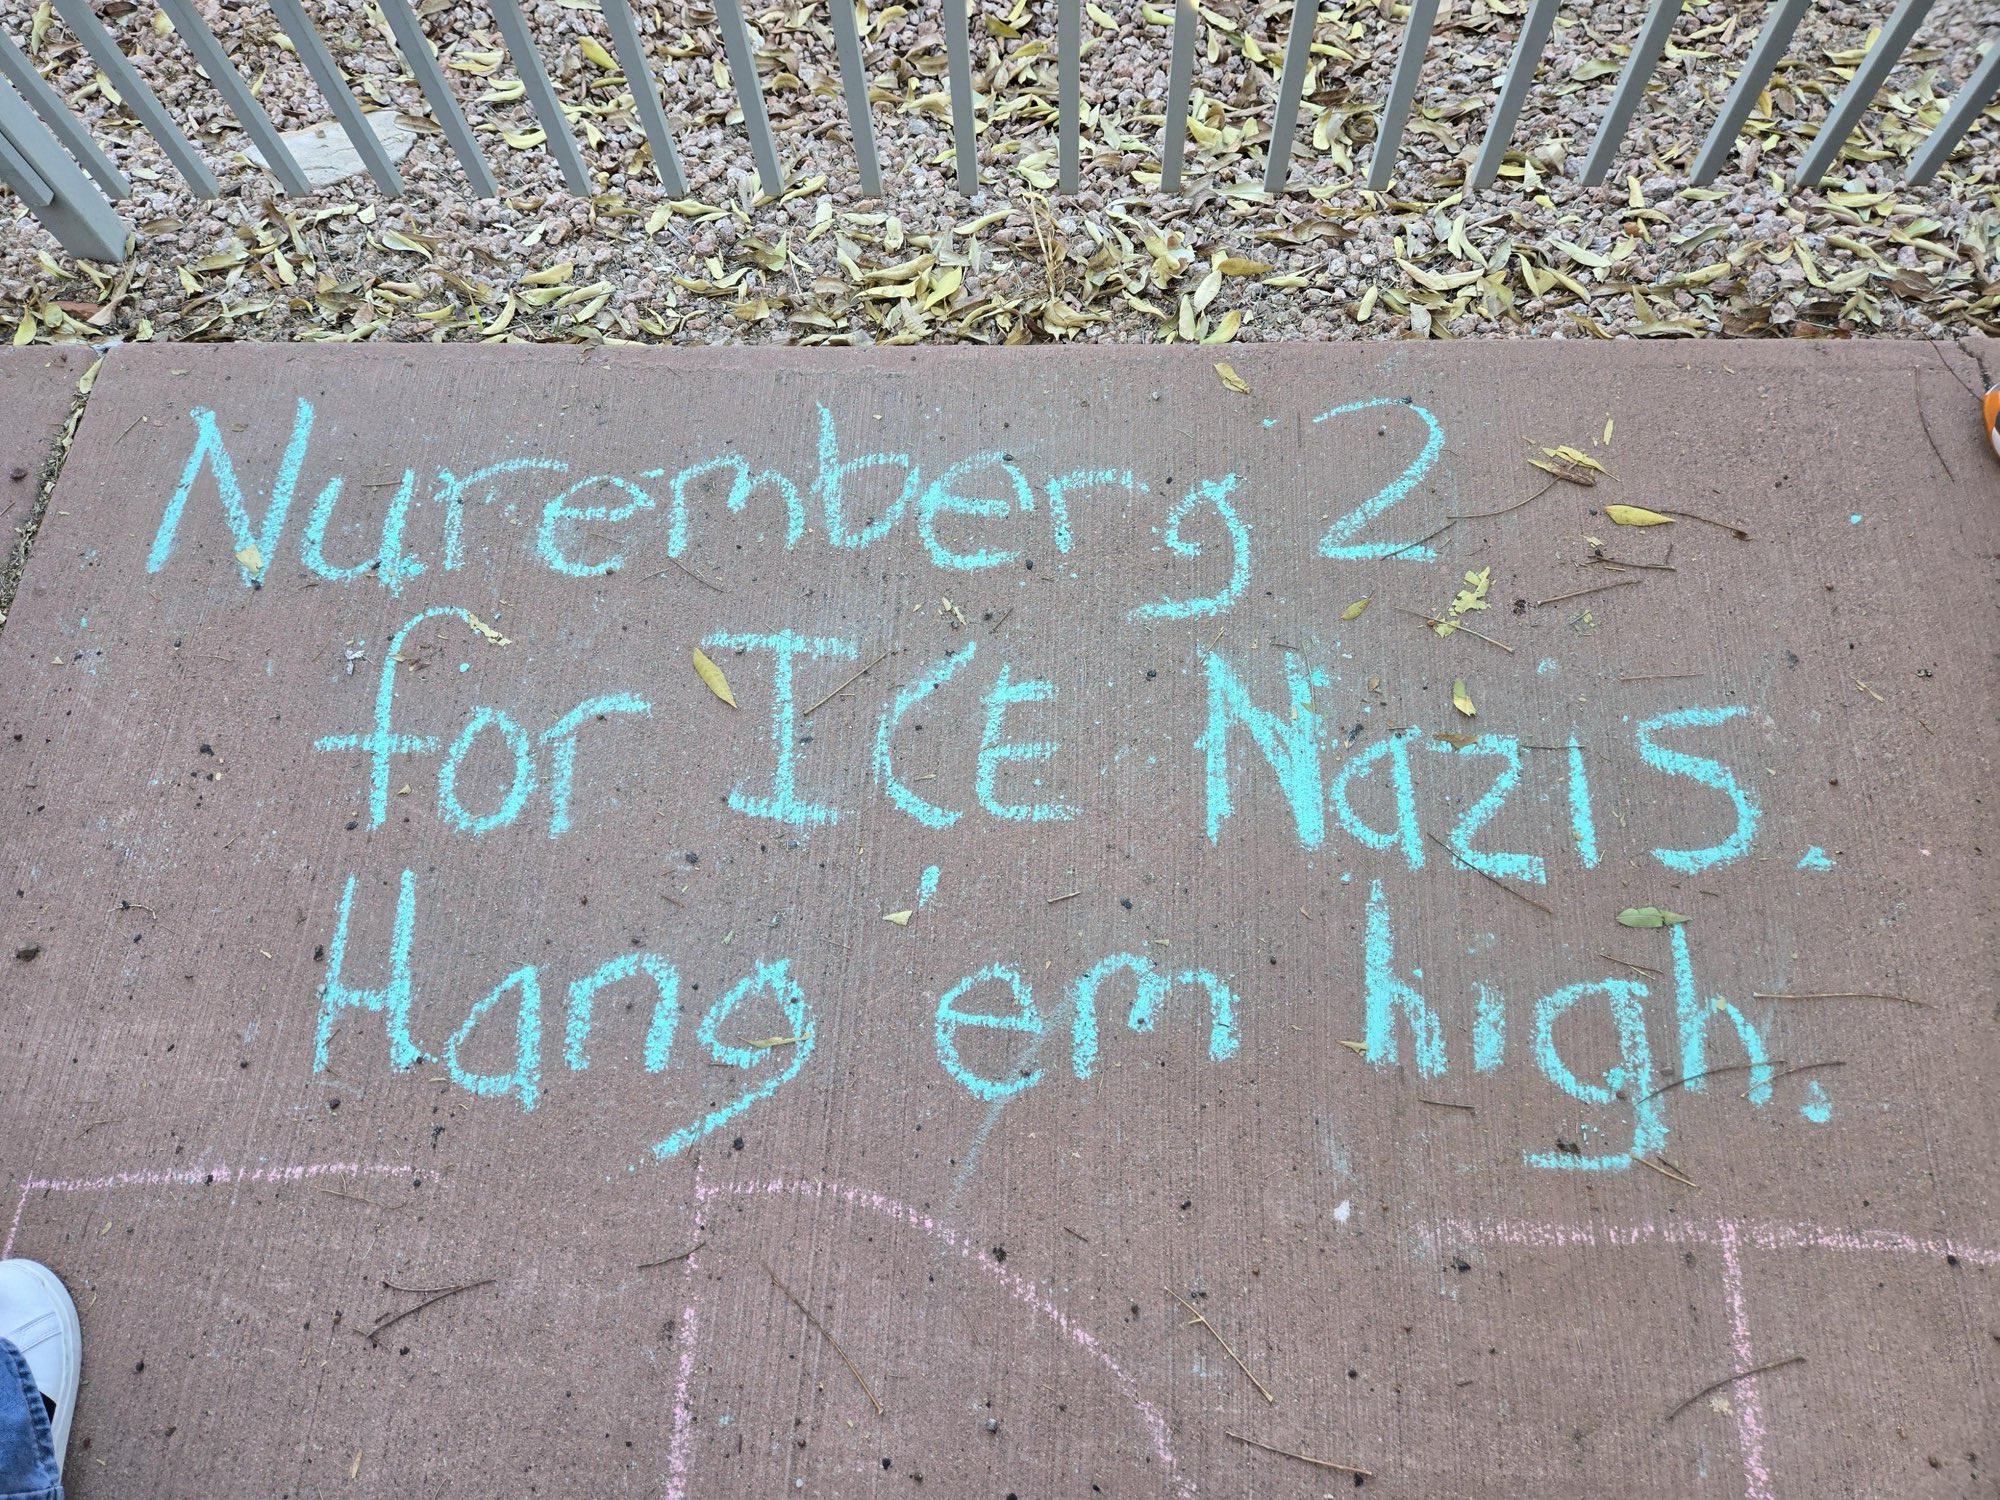 Nuremberg 2
for ICE Nazis.
Hang 'em high.